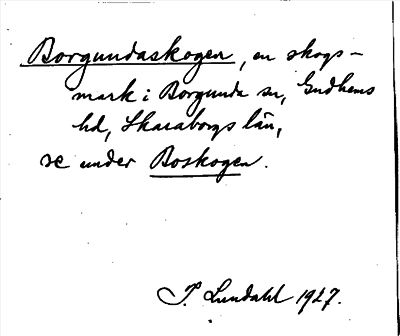 Borgundaskogen, en skogs-
mark i Borgunda sn, Gudhems
hd, Skaraborgs län,
se under Boskogen.
P. Lundahl 1927.